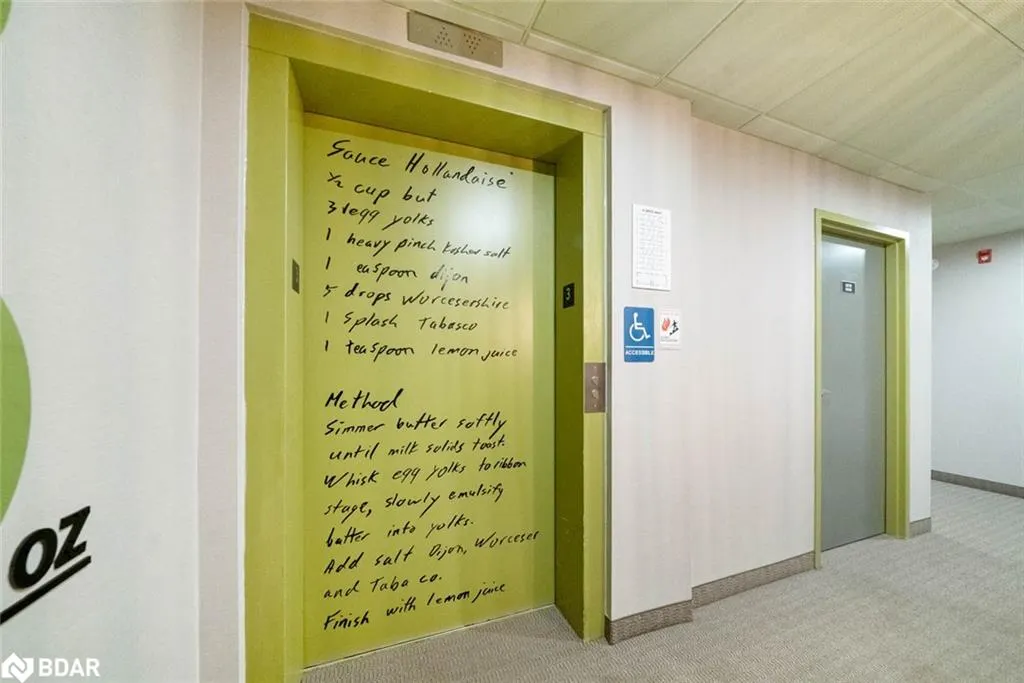 Sauce Hollandaise
½ cup but
3 egg yolks
1 heavy pinch kosher salt
1 easpoon dijon
5 drops Worcesershire
1 Splash Tabasco
1 teaspoon lemon juice
Method
Simmer butter softly
until milk solids toast.
Whisk egg yolks to ribbon
stage, slowly emulsify
butter into yolks.
Add salt Dijon, Worceser
and Taba co.
Finish with lemon juice
3
ACCESSIBLE
OZ
BDAR